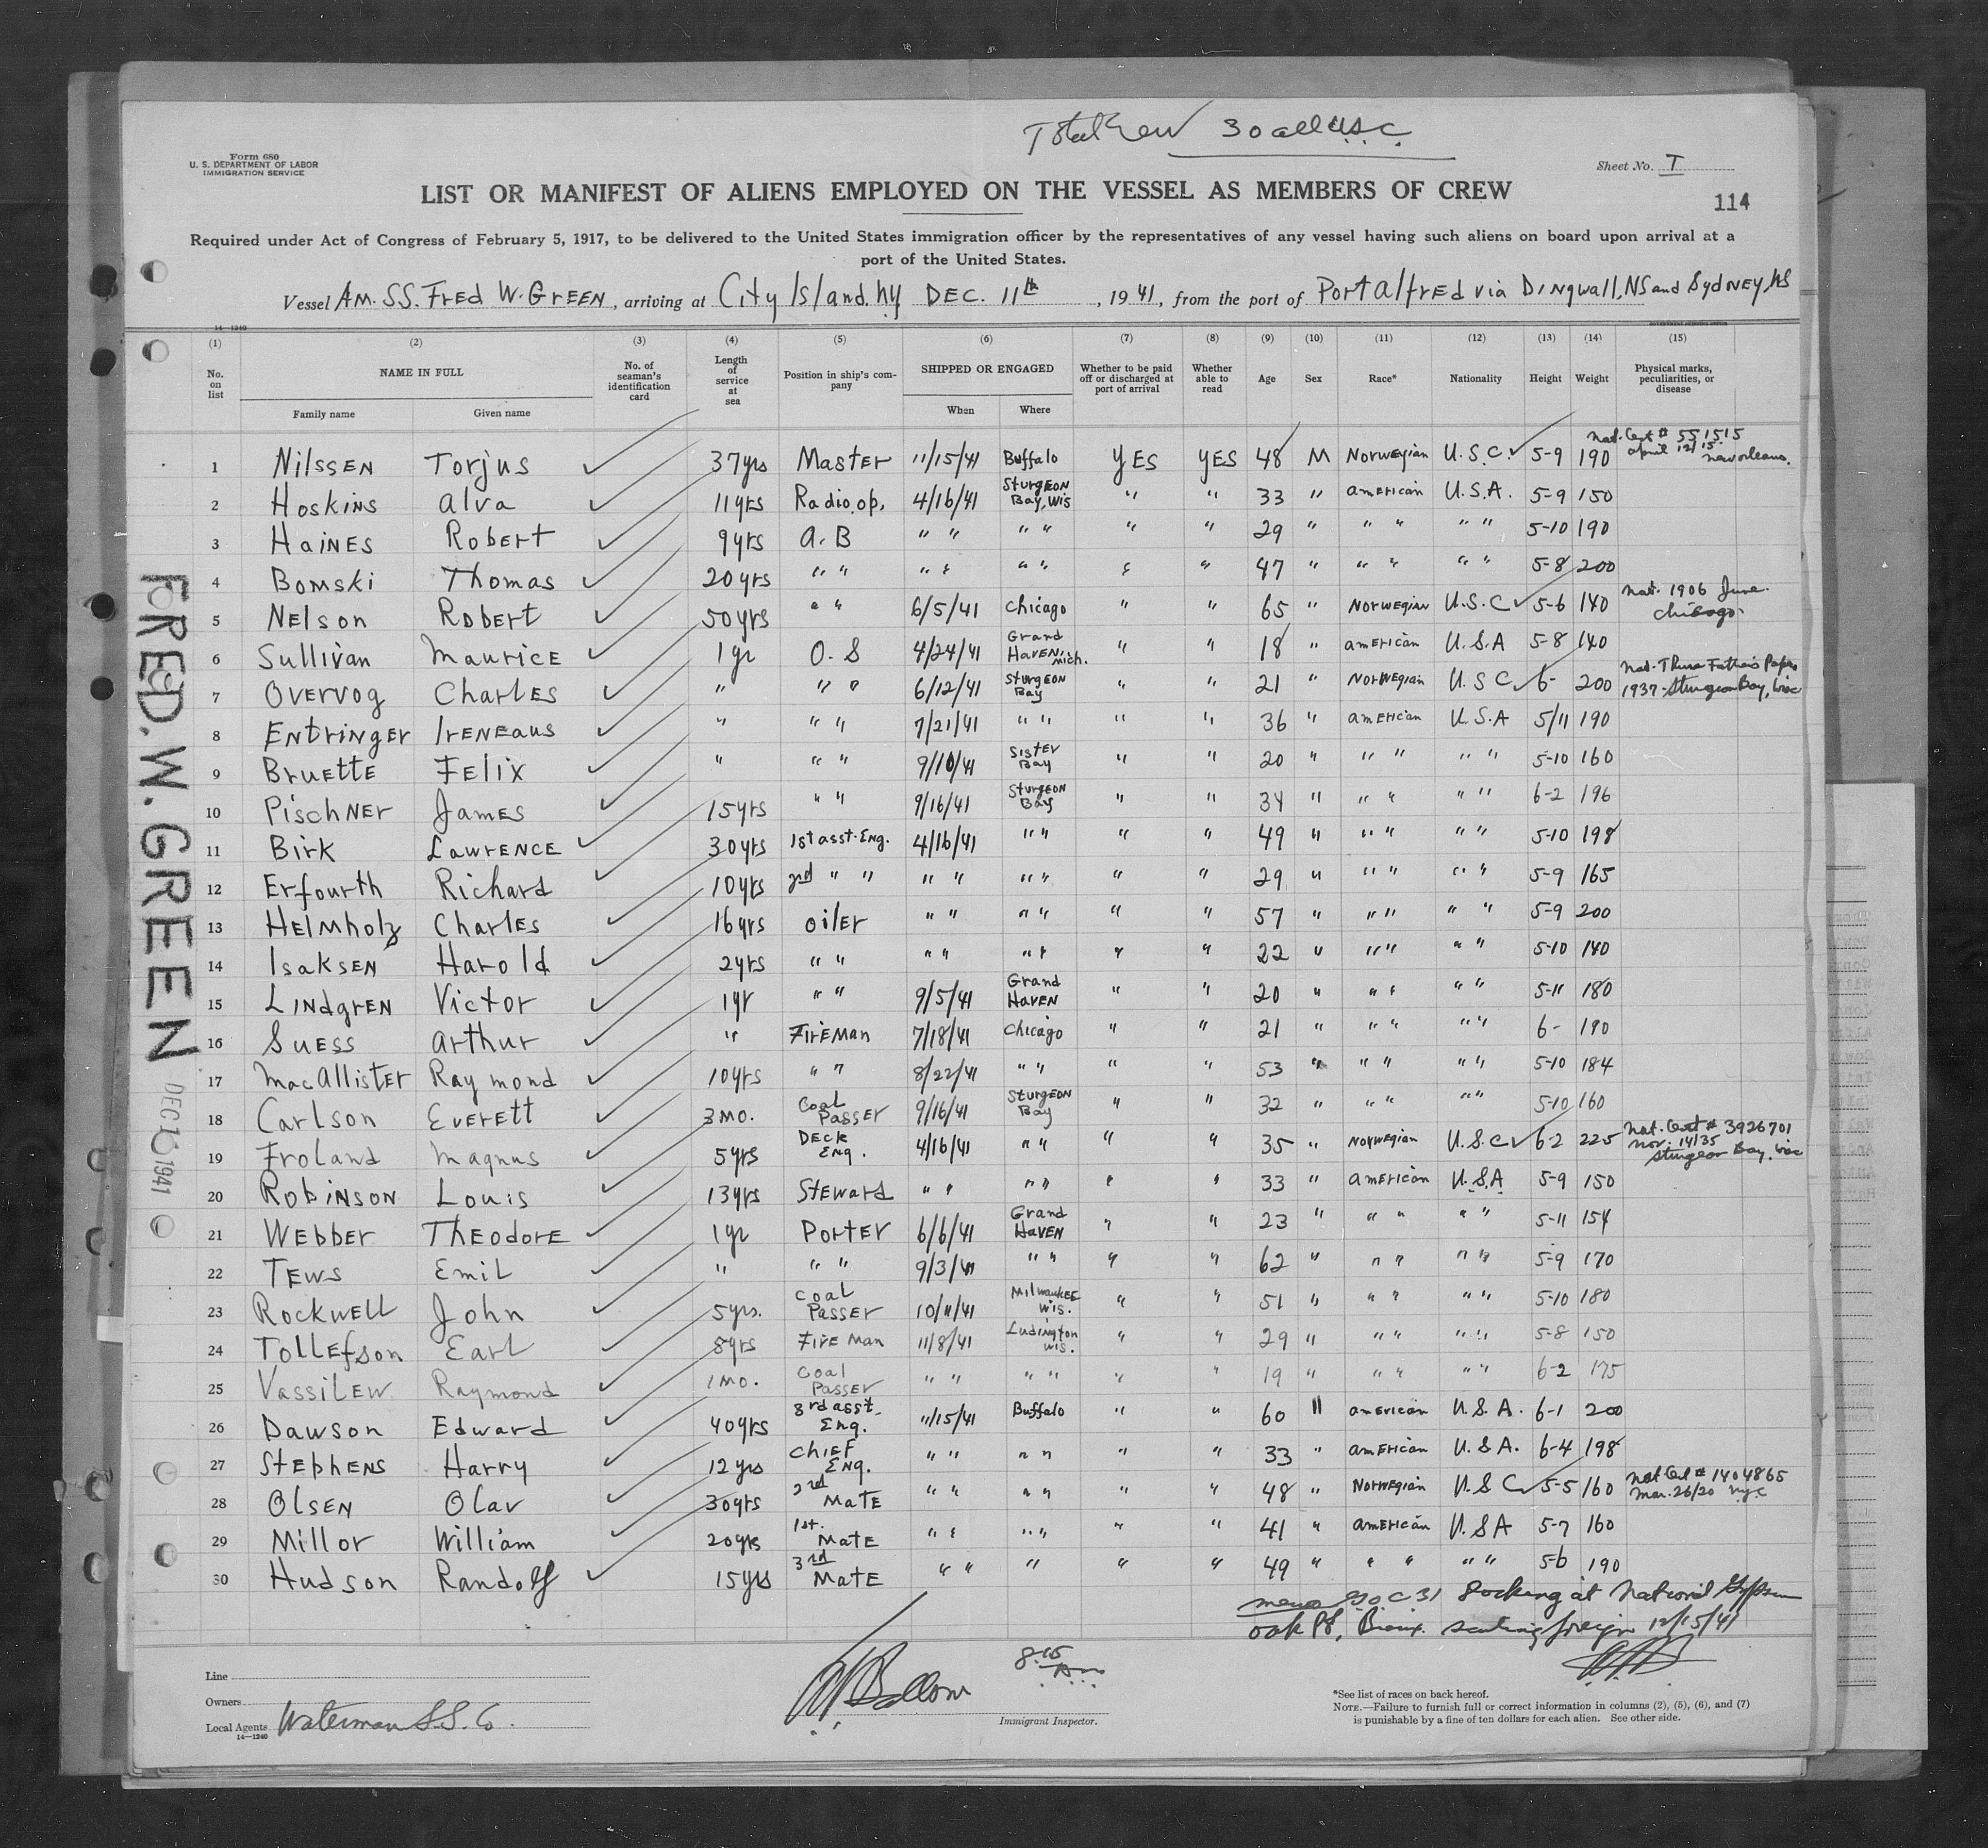 Total Crew 30 all U.S.C.
Form 680
U. S. DEPARTMENT OF LABOR
IMMIGRATION SERVICE
Sheet No. I
LIST OR MANIFEST OF ALIENS EMPLOYED ON THE VESSEL AS MEMBERS OF CREW
114
Required under Act of Congress of February 5, 1917, to be delivered to the United States immigration officer by the representatives of any vessel having such aliens on board upon arrival at a
port of the United States.
Vessel Am. SS. Fred W. Green, arriving at City Island, NY Dec. 11th, 1941, from the port of Port Alfred via Dingwall, NS and Sydney, NS
14—1240
(1) (2) (3) (4) (5) (6) (7) (8) (9) (10) (11) (12) (13) (14) (15)
No. on list NAME IN FULL Family name Given name No. of seaman's identification card Length of service at sea Position in ship's company SHIPPED OR ENGAGED When Where Whether to be paid off or discharged at port of arrival Whether able to read Age Sex Race* Nationality Height Weight Physical marks, peculiarities, or disease
1 Nilssen Torjus 37yrs Master 11/15/41 Buffalo Yes Yes 48 M Norwegian U.S.C. 5-9 190 Nat. Cert # 551515 April 12/15 New Orleans.
2 Hoskins Alva 11yrs Radio op. 4/16/41 Sturgeon Bay, Wis " " 33 " American U.S.A. 5-9 150
3 Haines Robert 9yrs A.B " " " " " " 29 " " " " " 5-10 190
4 Bomski Thomas 20yrs " " " " " " " " 47 " " " " " 5-8 200
5 Nelson Robert 50yrs " " 6/5/41 Chicago " " 65 " Norwegian U.S.C 5-6 140 Nat. 1906 June Chicago.
6 Sullivan Maurice 1yr O.S 4/24/41 Grand Haven, Mich. " " 18 " American U.S.A 5-8 140
7 Overvog Charles " " " 6/12/41 Sturgeon Bay " " 21 " Norwegian U.S C 6- 200 Nat. Thru Father's Papers 1937-Sturgeon Bay, Wisc
8 Entringer Ireneaus " " " 7/21/41 " " " " 36 " American U.S.A 5/11 190
9 Bruette Felix " " " 9/10/41 Sister Bay " " 20 " " " " " 5-10 160
10 Pischner James 15yrs " " 9/16/41 Sturgeon Bay " " 34 " " " " " 6-2 196
11 Birk Lawrence 30yrs 1st asst. Eng. 4/16/41 " " " " 49 " " " " " 5-10 198
12 Erfourth Richard 10yrs 2nd " " " " " " " " 29 " " " " " 5-9 165
13 Helmholz Charles 16yrs Oiler " " " " " " 57 " " " " " 5-9 200
14 Isaksen Harold 2yrs " " " " " " " " 22 " " " " " 5-10 140
15 Lindgren Victor 1yr " " 9/5/41 Grand Haven " " 20 " " " " " 5-11 180
16 Suess Arthur " Fireman 7/18/41 Chicago " " 21 " " " " " 6- 190
17 MacAllister Raymond 10yrs " " 8/22/41 " " " " 53 " " " " " 5-10 184
18 Carlson Everett 3 mo. Coal Passer 9/16/41 Sturgeon Bay " " 32 " " " " " 5-10 160
19 Froland Magnus 5yrs Deck Eng. 4/16/41 " " " " 35 " Norwegian U.S.C 6-2 225 Nat. Cert # 3926701 Nov. 14/35 Sturgeon Bay, Wisc
20 Robinson Louis 13yrs Steward " " " " " " 33 " American U.S.A 5-9 150
21 Webber Theodore 1yr Porter 6/6/41 Grand Haven " " 23 " " " " " 5-11 154
22 Tews Emil " " " 9/3/41 " " " " 62 " " " " " 5-9 170
23 Rockwell John 5yrs. Coal Passer 10/11/41 Milwaukee Wis. " " 51 " " " " " 5-10 180
24 Tollefson Earl 8yrs Fireman 11/8/41 Ludington Wis. " " 29 " " " " " 5-8 150
25 Vassilew Raymond 1 mo. Coal Passer " " " " " " 19 " " " " " 6-2 175
26 Dawson Edward 40yrs 3rd asst. Eng. 11/15/41 Buffalo " " 60 " American U.S.A. 6-1 200
27 Stephens Harry 12yrs Chief Eng. " " " " " " 33 " American U.S.A. 6-4 198
28 Olsen Olav 30yrs 2nd Mate " " " " " " 48 " Norwegian U.S C 5-5 160 Nat Cert # 1404865 Mar. 26/20 NYC
29 Millor William 20yrs 1st. Mate " " " " " " 41 " American U.S.A 5-7 160
30 Hudson Randolf 15yrs 3rd Mate " " " " " 49 " " " " " 5-6 190
docking at National Gypsum
foreign 12/15/41
FRED. W. GREEN
DEC 1941
8:15
Line
Owners
Local Agents Waterman S.S. Co.
14—1240
Immigrant Inspector.
*See list of races on back hereof.
NOTE.—Failure to furnish full or correct information in columns (2), (5), (6), and (7)
is punishable by a fine of ten dollars for each alien. See other side.